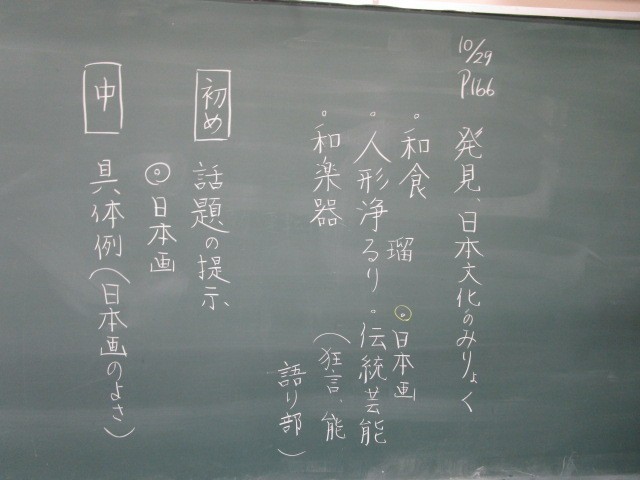 10/29
P166
発見、日本文化のみりょく
。和食
◎日本画
瑠
。人形浄るり
。伝統芸能
。和楽器
(狂言、能
語り部)
初め
話題の提示
◎日本画
中
具体例(日本画のよさ)